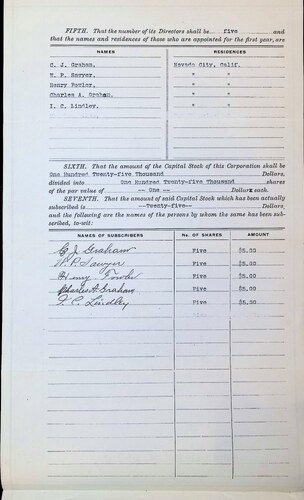 FIFTH. That the number of its Directors shall be five and
that the names and residences of those who are appointed for the first year, are
NAMES RESIDENCES
C. J. Graham, Nevada City, Calif.
W. P. Sawyer, " "
Henry Fowler, " "
Charles A. Graham, " "
I. C. Lindley, " "
SIXTH. That the amount of the Capital Stock of this Corporation shall be
One Hundred Twenty-five Thousand Dollars,
divided into One Hundred Twenty-five Thousand shares
of the par value of -- One -- Dollars each.
SEVENTH. That the amount of said Capital Stock which has been actually
subscribed is --Twenty-five-- Dollars,
and the following are the names of the persons by whom the same has been sub-
scribed, to-wit:
NAMES OF SUBSCRIBERS No. OF SHARES AMOUNT
C J Graham Five $5.00
W. P. Sawyer Five $5.00
Henry Fowler Five $5.00
Charles A. Graham Five $5.00
I. C. Lindley Five $5.00